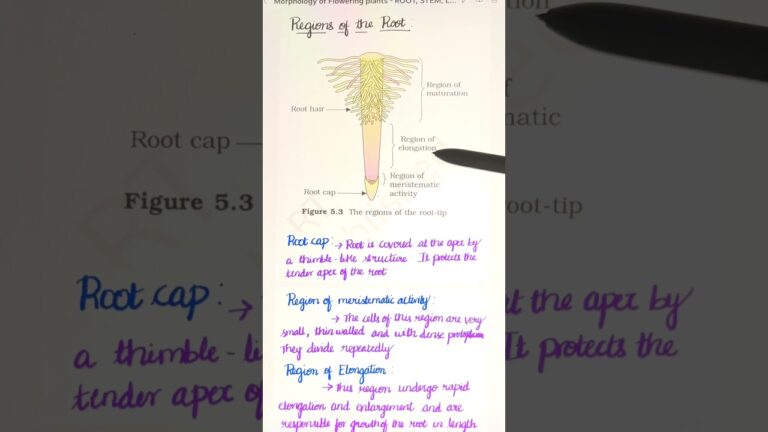 Morphology of Flowering plants - ROOT, STEM, L...
Regions of the Root:
Region of
maturation
Root hair
Region of
elongation
Region of
meristematic
activity
Root cap
Figure 5.3 The regions of the root-tip
Root cap: → Root is covered at the apex by
a thimble-like structure It protects the
tender apex of the root
Region of meristematic activity:
→ The cells of this region are very
small, thin walled and with dense
They divide repeatedly
Region of Elongation:
→ This region undergo rapid
elongation and enlargement and are
responsible for growth of the root in length
Root cap
Figure 5.3
Root cap: →
a thimble-li
tender apex of
tion
matic
root-tip
at the apex by
It protects the